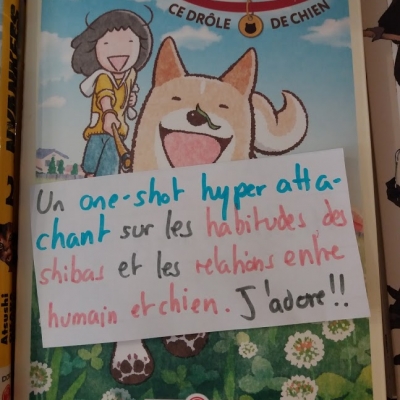 CE DRÔLE DE CHIEN
Un one-shot hyper atta-
chant sur les habitudes des
shibas et les relations entre
humain et chien. J'adore!!
Atsushi